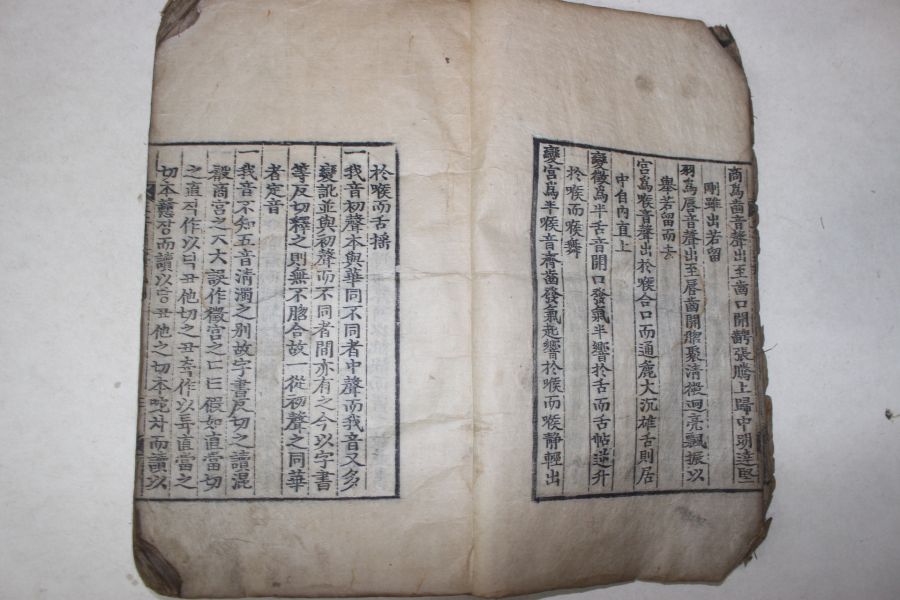 商爲齒音聲出至齒口開齶張騰上歸中明達堅
剛雖出若留
羽爲唇音聲出至唇齒開聚清徵迥亮飄振以
擧若留而去
宮爲喉音聲出於喉合口而通麁大沉雄舌則居
中自內直上
變徵爲半舌音開口發氣半響於舌而舌帖逆升
於喉而喉舞
變宮爲半喉音齊齒發氣起響於喉而喉靜輕出
於喉而舌搖
一我音初聲本與華同不同者中聲而我音又多
變訛並與初聲而不同者間亦有之今以字書
等反切釋之則無不脗合故一從初聲之同華
者定音
一我音不知五音淸濁之别故字書反切之讀混
商宮之誤作徵宮之曰假如直當切
之直직作以딕丑他切之丑츄作以듀直當之
切本당而讀以丑他之切本咤차而讀以